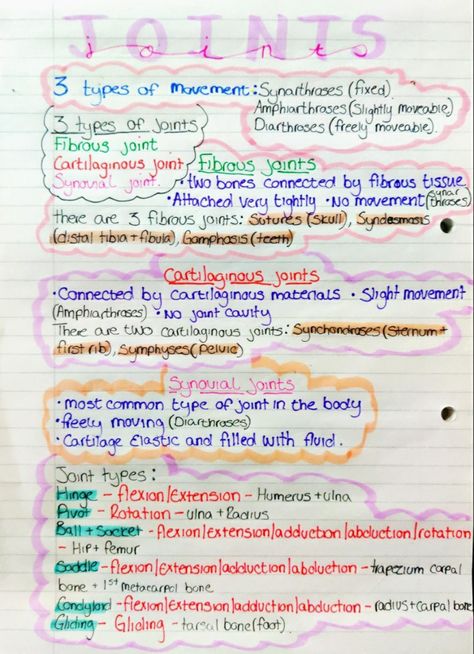 JOINTS
joints
3 types of movement: Synarthroses (fixed)
Amphiarthroses (Slightly moveable)
Diarthroses (freely moveable).
3 types of joints
Fibrous joint
Cartilaginous joint
Synovial joint.
Fibrous joints
• Two bones connected by fibrous tissue
• Attached very tightly • No movement (Synar
throses)
There are 3 fibrous joints: Sutures (skull), Syndesmosis
(distal tibia + fibula), Gomphosis (teeth)
Cartilaginous joints
• Connected by cartilaginous materials • Slight movement
(Amphiarthroses) • No joint cavity
There are two cartilaginous joints: Synchondroses (Sternum +
first rib), Symphyses (pelvic)
Synovial joints
• most common type of joint in the body
• feely moving (Diarthroses)
• Cartilage Elastic and filled with fluid.
Joint types:
Hinge – flexion/Extension – Humerus + ulna
Pivot – Rotation – ulna + Radius
Ball + Socket – flexion/extension/adduction/abduction/rotation
– Hip + femur
Saddle – flexion/Extension/adduction/abduction – trapezium carpal
bone + 1st metacarpol bone
Condyloid – flexion/Extension/adduction/abduction – radius + carpal bone
Gliding – Gliding – tarsal bone (foot).